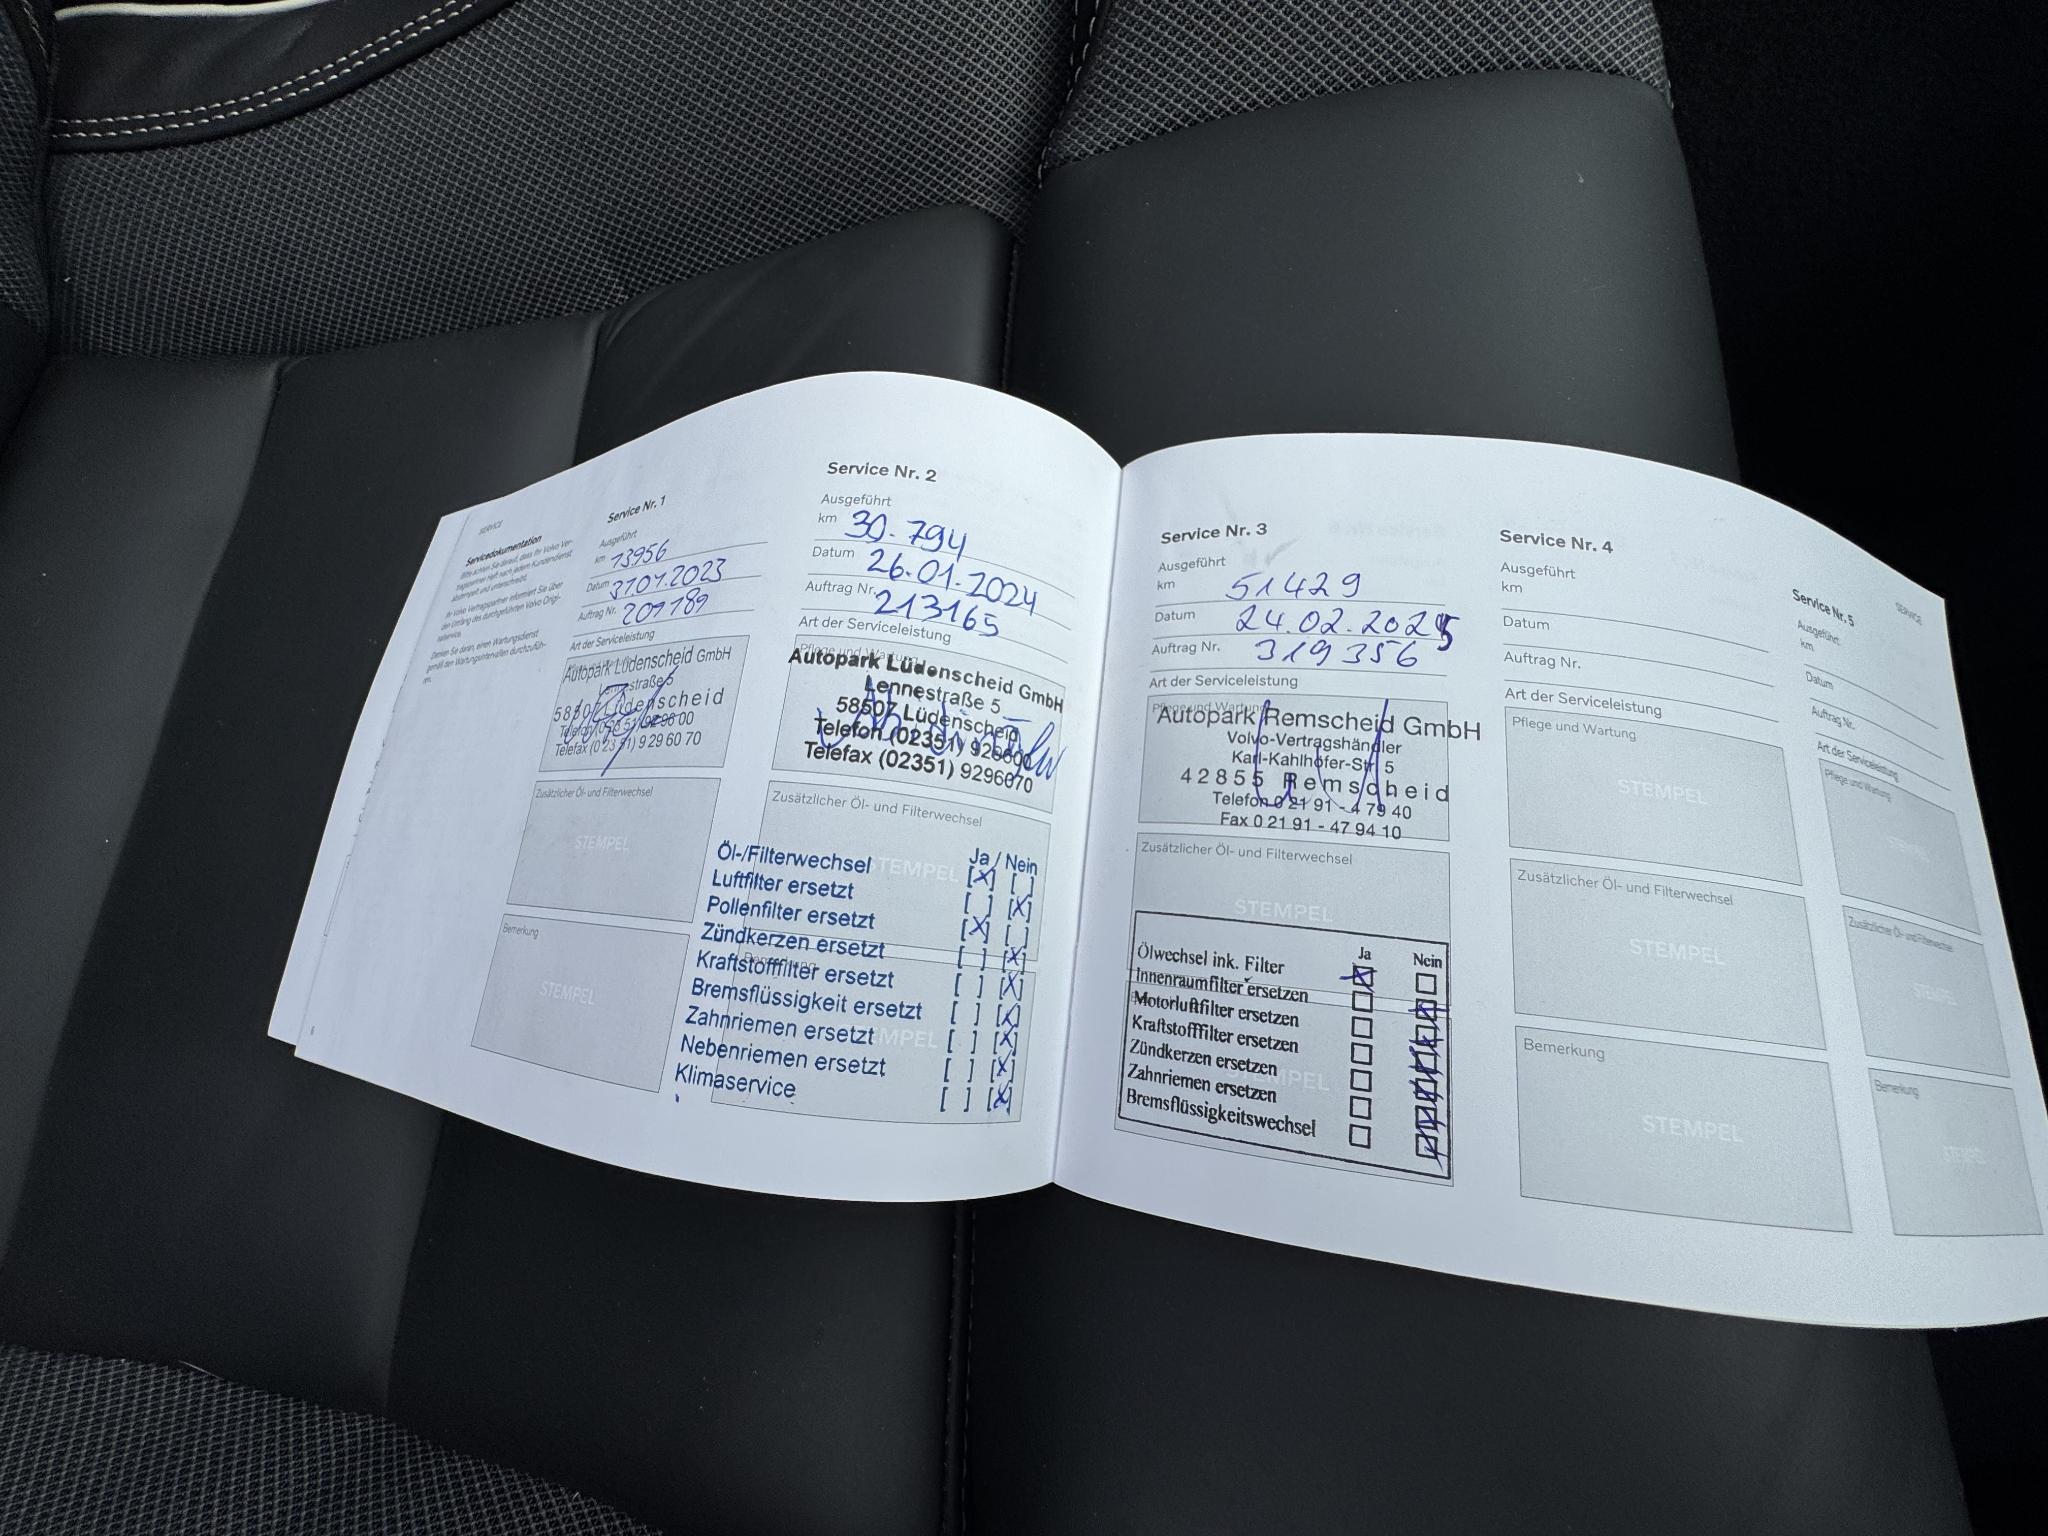 SERVICE
Servicedokumentation
Bitte achten Sie darauf, dass Ihr Volvo Ver-
tragspartner Heft nach jedem Kundendienst
abstempelt und unterschreibt.
Ihr Volvo Vertragspartner informiert Sie über
den Umfang des durchgeführten Volvo Origi-
nalservice.
Denken Sie daran, einen Wartungsdienst
gemäß den Wartungsintervallen durchzufüh-
ren.
6
Service Nr. 1
Ausgeführt
km 13956
Datum 31.01.2023
Auftrag Nr. 201189
Art der Serviceleistung
Autopark Lüdenscheid GmbH
Lennestraße 5
58507 Lüdenscheid
Telefon (0 23 51) 92 96 00
Telefax (0 23 51) 9 29 60 70
Zusätzlicher Öl- und Filterwechsel
STEMPEL
Bemerkung
STEMPEL
Service Nr. 2
Ausgeführt
km 30.794
Datum 26.01.2024
Auftrag Nr. 213165
Art der Serviceleistung
Pflege und Wartung
Autopark Lüdenscheid GmbH
Lennestraße 5
58507 Lüdenscheid
Telefon (02351) 929600
Telefax (02351) 9296070
Zusätzlicher Öl- und Filterwechsel
STEMPEL
Ja / Nein
Öl-/Filterwechsel [X] [ ]
Luftfilter ersetzt [ ] [X]
Pollenfilter ersetzt [X] [ ]
Zündkerzen ersetzt [ ] [X]
Kraftstofffilter ersetzt [ ] [X]
Bremsflüssigkeit ersetzt [ ] [X]
Zahnriemen ersetzt [ ] [X]
Nebenriemen ersetzt [ ] [X]
Klimaservice [ ] [X]
Service Nr. 3
Ausgeführt
km 51429
Datum 24.02.2025
Auftrag Nr. 319356
Art der Serviceleistung
Pflege und Wartung
Autopark Remscheid GmbH
Volvo-Vertragshändler
Karl-Kahlhöfer-Str. 5
42855 Remscheid
Telefon 0 21 91 - 4 79 40
Fax 0 21 91 - 47 94 10
Zusätzlicher Öl- und Filterwechsel
STEMPEL
Ja Nein
Ölwechsel ink. Filter
Innenraumfilter ersetzen
Motorluftfilter ersetzen
Kraftstofffilter ersetzen
Zündkerzen ersetzen
Zahnriemen ersetzen
Bremsflüssigkeitswechsel
STEMPEL
Service Nr. 4
Ausgeführt
km
Datum
Auftrag Nr.
Art der Serviceleistung
Pflege und Wartung
STEMPEL
Zusätzlicher Öl- und Filterwechsel
STEMPEL
Bemerkung
STEMPEL
SERVICE
Service Nr. 5
Ausgeführt
km
Datum
Auftrag Nr.
Art der Serviceleistung
Pflege und Wartung
STEMPEL
Zusätzlicher Öl- und Filterwechsel
STEMPEL
Bemerkung
STEMPEL